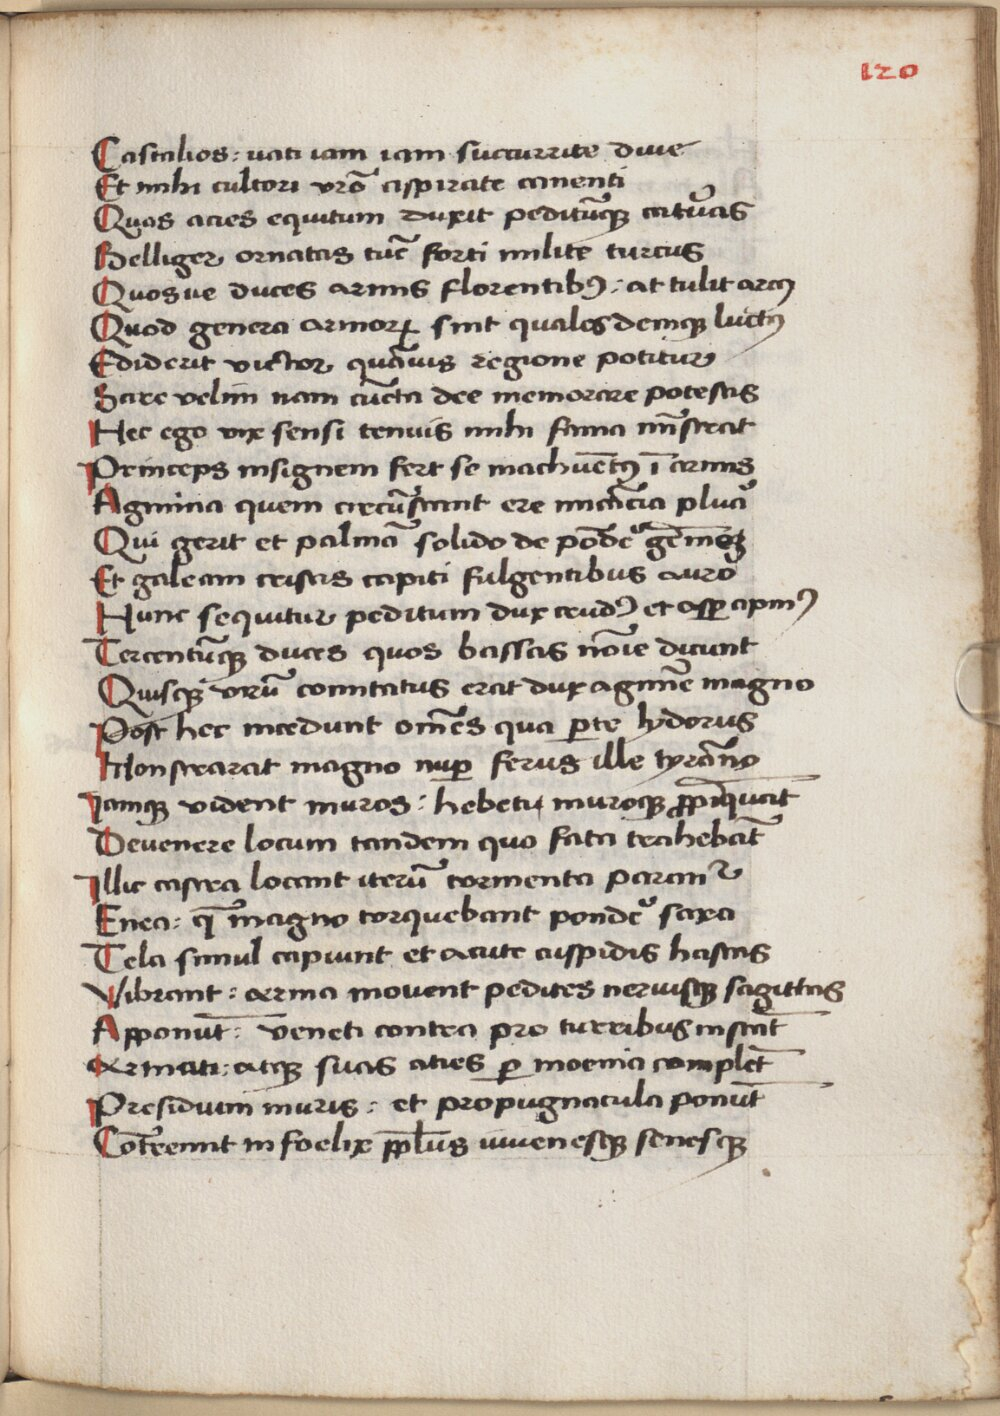 120
Castalios: uati iam iam succurrite diue
Et mihi cultori vr̄o aspirate canenti
Quas acies equitum duxit peditūqꝫ cateruas
Belliger ornatas tūc forti milite turcus
Quosue duces armis florentibꝰ: at tulit arcꝰ
Quod genera armoꝝ sint quales deniqꝫ luctꝰ
Ediderit victor quāuis regione potitur
Hare velim nam cūcta dee memorare potestas
Hec ego vix sensi tenuis mihi fama mīstrat
Princeps insignem fert se machuētꝰ ī armis
Agmina quem circūstant ere micācia
Qui gerit et palmā solido de pōdē gēmeqꝫ
Et galeam cristas capiti fulgentibus auro
Hunc sequitur peditum dux crudꝰ et asꝑ
Tercentūqꝫ duces quos bassas nōie dicunt
Quisqꝫ virū comitatus erat dux agmīe magno
Post hec incedunt omēs qua ꝑte lydorus
Monstrarat magno nuꝑ ferus ille tyrāno
Iamqꝫ vident muros: hebeti muroqꝫ ꝓpīquāt
Devenere locum tandem quo fata trahebāt
Illic castra locant iterū tormenta parant᷑
Enea: q̄ magno torquebant pondē saxa
Tela simul capiunt et acute cuspidis hastas
Vibrant: arma movent pedites nervisqꝫ sagittas
Apponūt: veneti contra pro turribus instāt
Armati: atqꝫ suas acies ꝑ moenia complēt
Presidium muris: et propugnacula ponūt
Cōtremit in foelix ppl̄us iuvenesqꝫ senesqꝫ